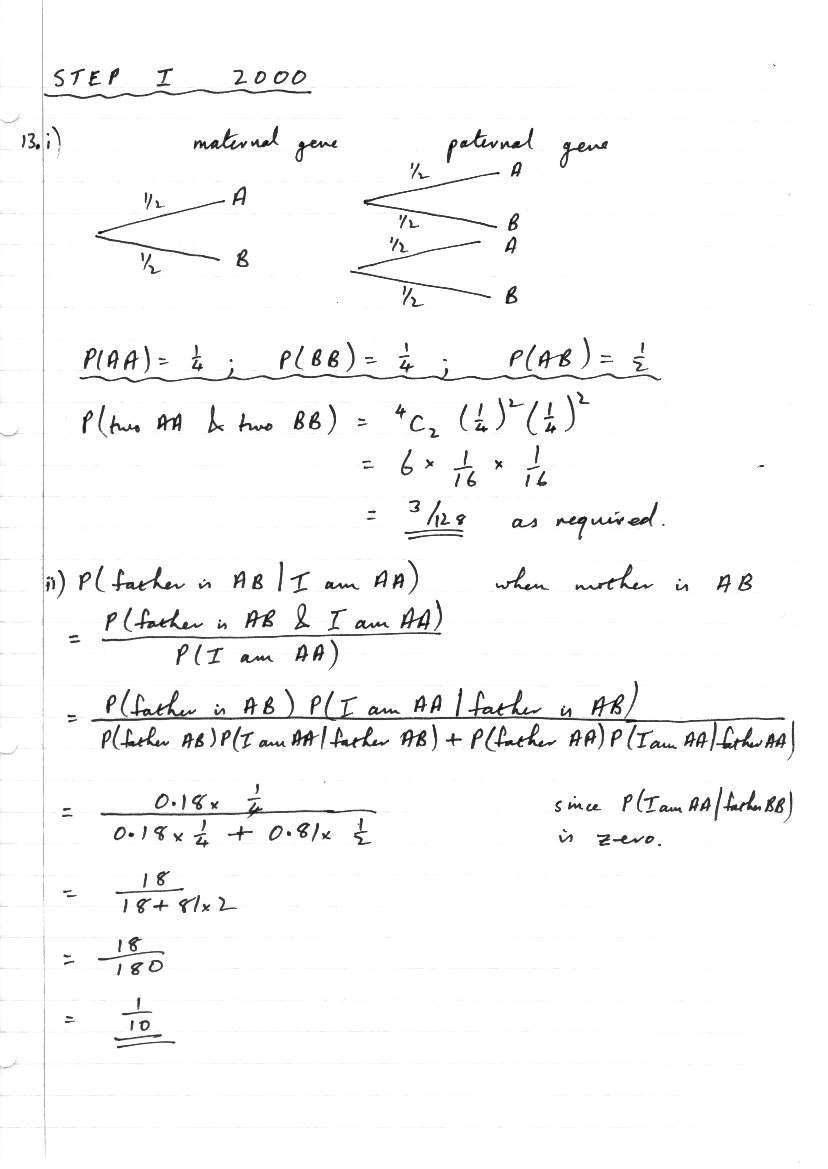 STEP I 2000
13.i) maternal gene paternal gene
1/2 A
1/2 A
1/2 B
1/2 A
1/2 B
1/2 B
P(AA) = 1/4 ; P(BB) = 1/4 ; P(AB) = 1/2
P(two AA & two BB) = ⁴C₂ (1/4)² (1/4)²
= 6 × 1/16 × 1/16
= 3/128 as required.
ii) P(father is AB | I am AA) when mother is AB
= P(father is AB & I am AA)
P(I am AA)
= P(father is AB) P(I am AA | father is AB)
P(father AB) P(I am AA | father AB) + P(father AA) P(I am AA | father AA)
= 0.18 × 1/4
0.18 × 1/4 + 0.81 × 1/2
since P(I am AA | father BB)
is zero.
= 18
18 + 81 × 2
= 18
180
= 1
10